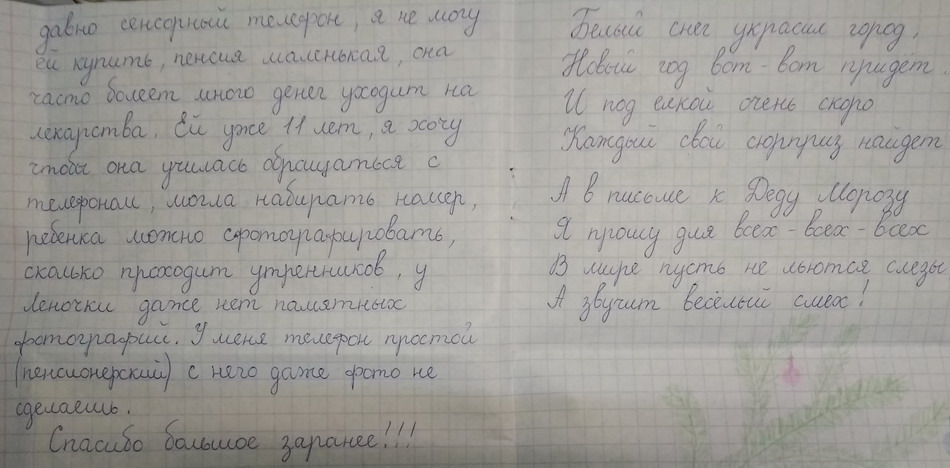 давно сенсорный телефон, я не могу
ей купить, пенсия маленькая, она
часто болеет много денег уходит на
лекарства. Ей уже 11 лет, я хочу
чтобы она училась обращаться с
телефоном, могла набирать номер,
ребенка можно сфотографировать,
сколько проходит утренников, у
Леночки даже нет памятных
фотографий. У меня телефон простой
(пенсионерский) с него даже фото не
сделаешь.
Спасибо большое заранее!!!
Белый снег украсил город,
Новый год вот-вот придёт.
И под елкой очень скоро
Каждый свой сюрприз найдет
А в письме к Деду Морозу
Я прошу для всех-всех-всех
В мире пусть не льются слезы
А звучит весёлый смех!